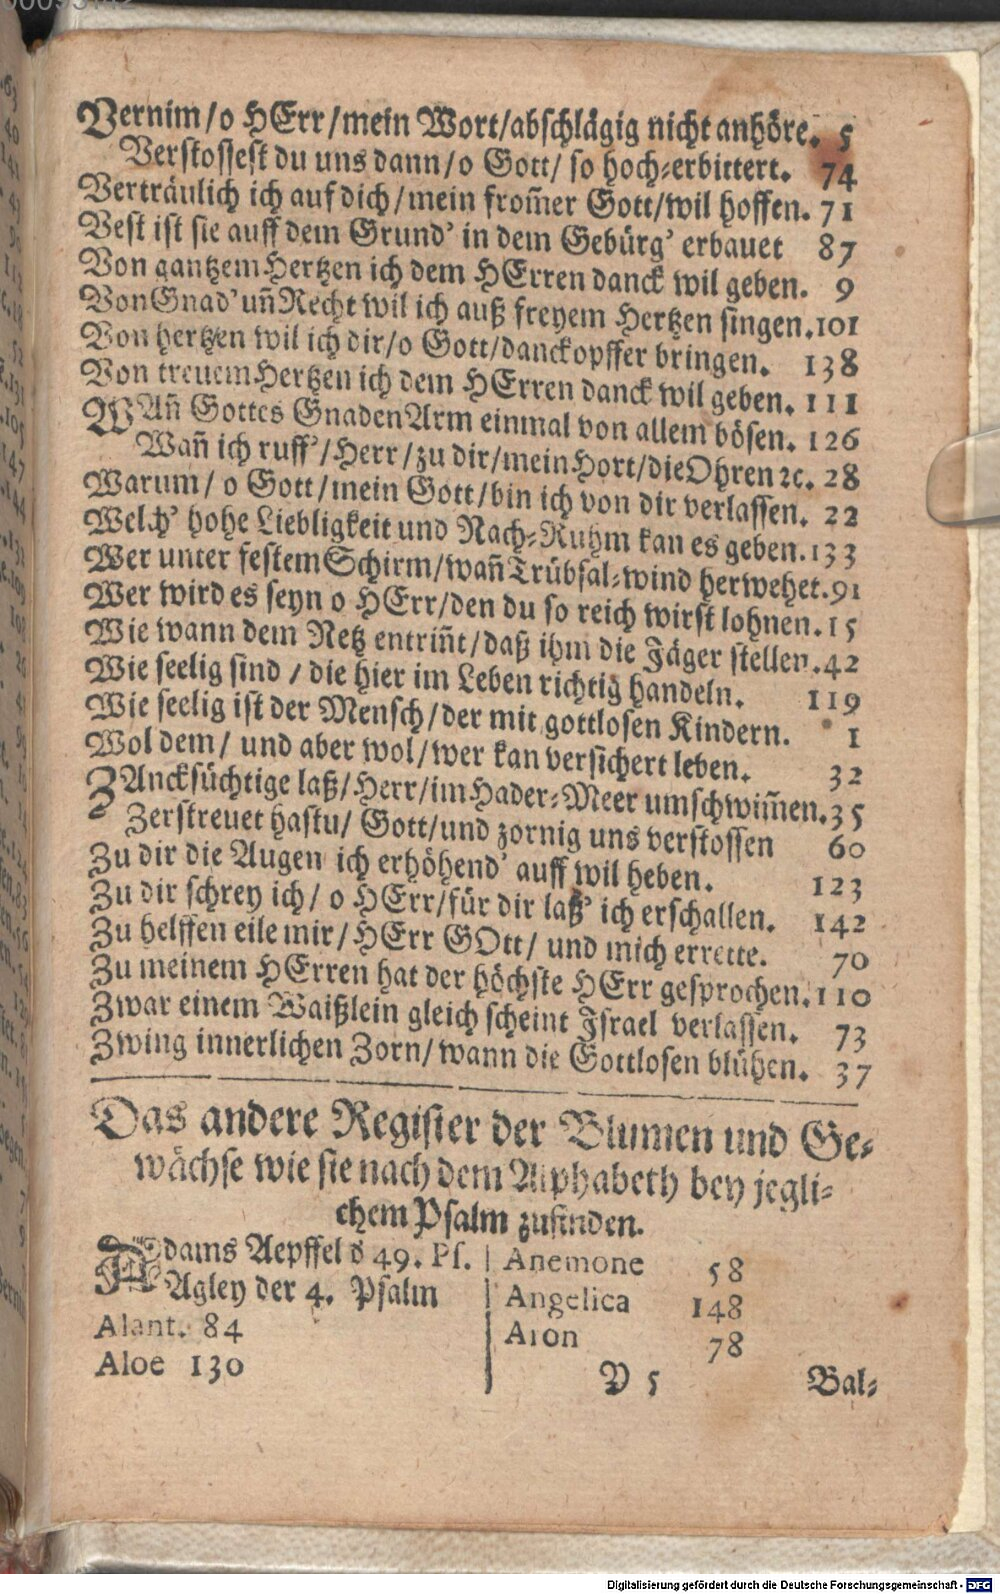 Vernim/o HErr/mein Wort/abschlägig nicht anhöre. 5
Verstossest du uns dann/o Gott/ so hoch-erbittert. 74
Verträulich ich auf dich/mein from̃er Gott/wil hoffen. 71
Vest ist sie auff dem Grund' in dem Gebürg' erbauet 87
Von gantzem Hertzen ich dem HErren danck wil geben. 9
Von Gnad' uñ Recht wil ich auß freyem Hertzen singen. 101
Von hertzen wil ich dir/o Gott/danckopffer bringen. 138
Von treuem Hertzen ich dem HErren danck wil geben. 111
WAñ Gottes Gnaden Arm einmal von allem bösen. 126
Wañ ich ruff'/Herr/zu dir/mein Hort/die Ohren ꝛc. 28
Warum/ o Gott/mein Gott/bin ich von dir verlassen. 22
Welch' hohe Liebligkeit und Nach-Ruhm kan es geben. 133
Wer unter festem Schirm/wañ Trübsal-wind herwehet. 91
Wer wird es seyn o HErr/den du so reich wirst lohnen. 15
Wie wann dem Netz entriñt/daß ihm die Jäger stellen. 42
Wie seelig sind / die hier im Leben richtig handeln. 119
Wie seelig ist der Mensch/der mit gottlosen Kindern. 1
Wol dem/ und aber wol/wer kan versichert leben. 32
ZAncksüchtige laß/Herr/im Hader-Meer umschwim̃en. 35
Zerstreuet hastu/ Gott/und zornig uns verstossen 60
Zu dir die Augen ich erhöhend' auff wil heben. 123
Zu dir schrey ich/ o HErr/für dir laß' ich erschallen. 142
Zu helffen eile mir/HErr GOtt/ und mich errette. 70
Zu meinem HErren hat der höchste HErr gesprochen. 110
Zwar einem Waißlein gleich scheint Israel verlassen. 73
Zwing innerlichen Zorn/wann die Gottlosen blühen. 37
Das andere Register der Blumen und Ge-
wächse wie sie nach dem Alphabeth bey jegli-
chem Psalm zufinden.
ADams Aepffel d 49. Ps.
Agley der 4. Psalm
Alant. 84
Aloe 130
Anemone 58
Angelica 148
Aron 78
Y 5
Bal-
Digitalisierung gefördert durch die Deutsche Forschungsgemeinschaft - DFG